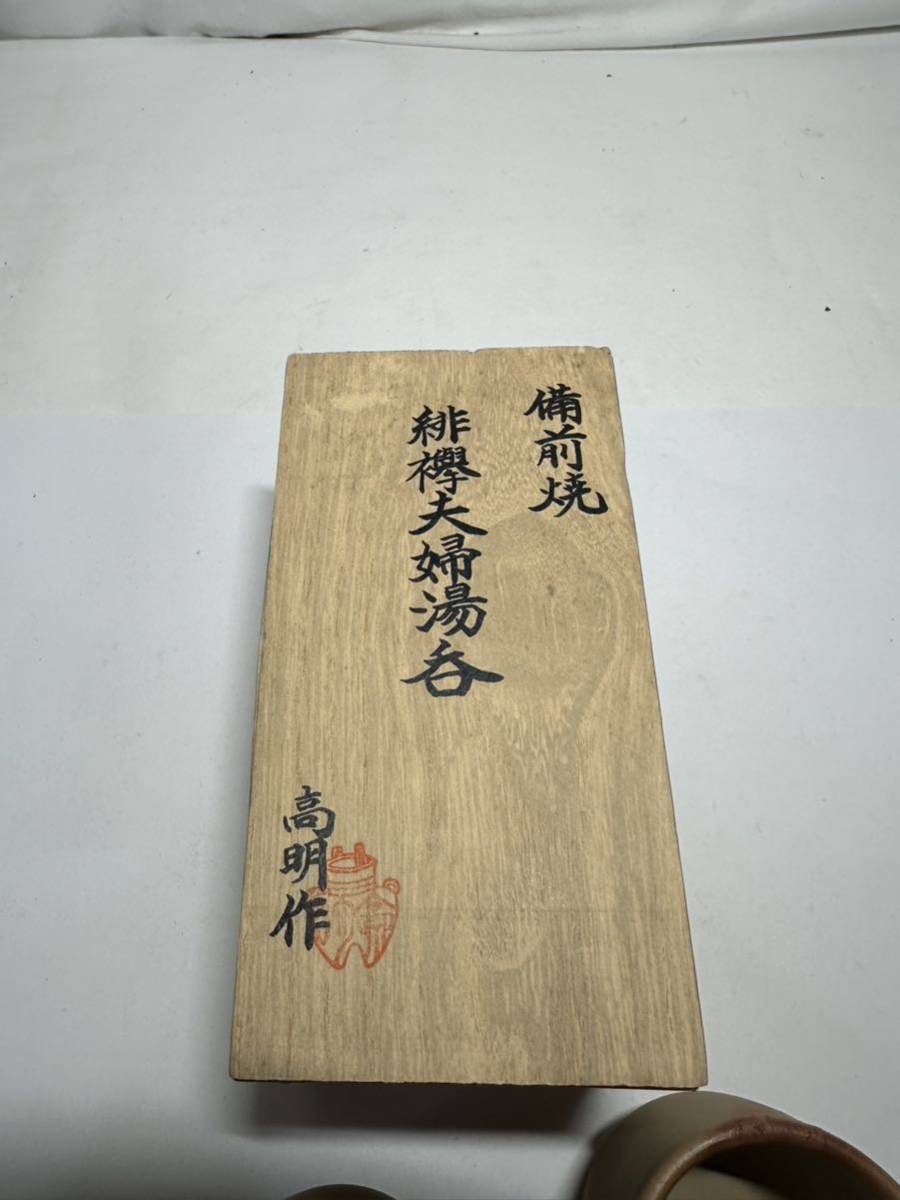 備前焼
緋襷夫婦湯呑
高明作